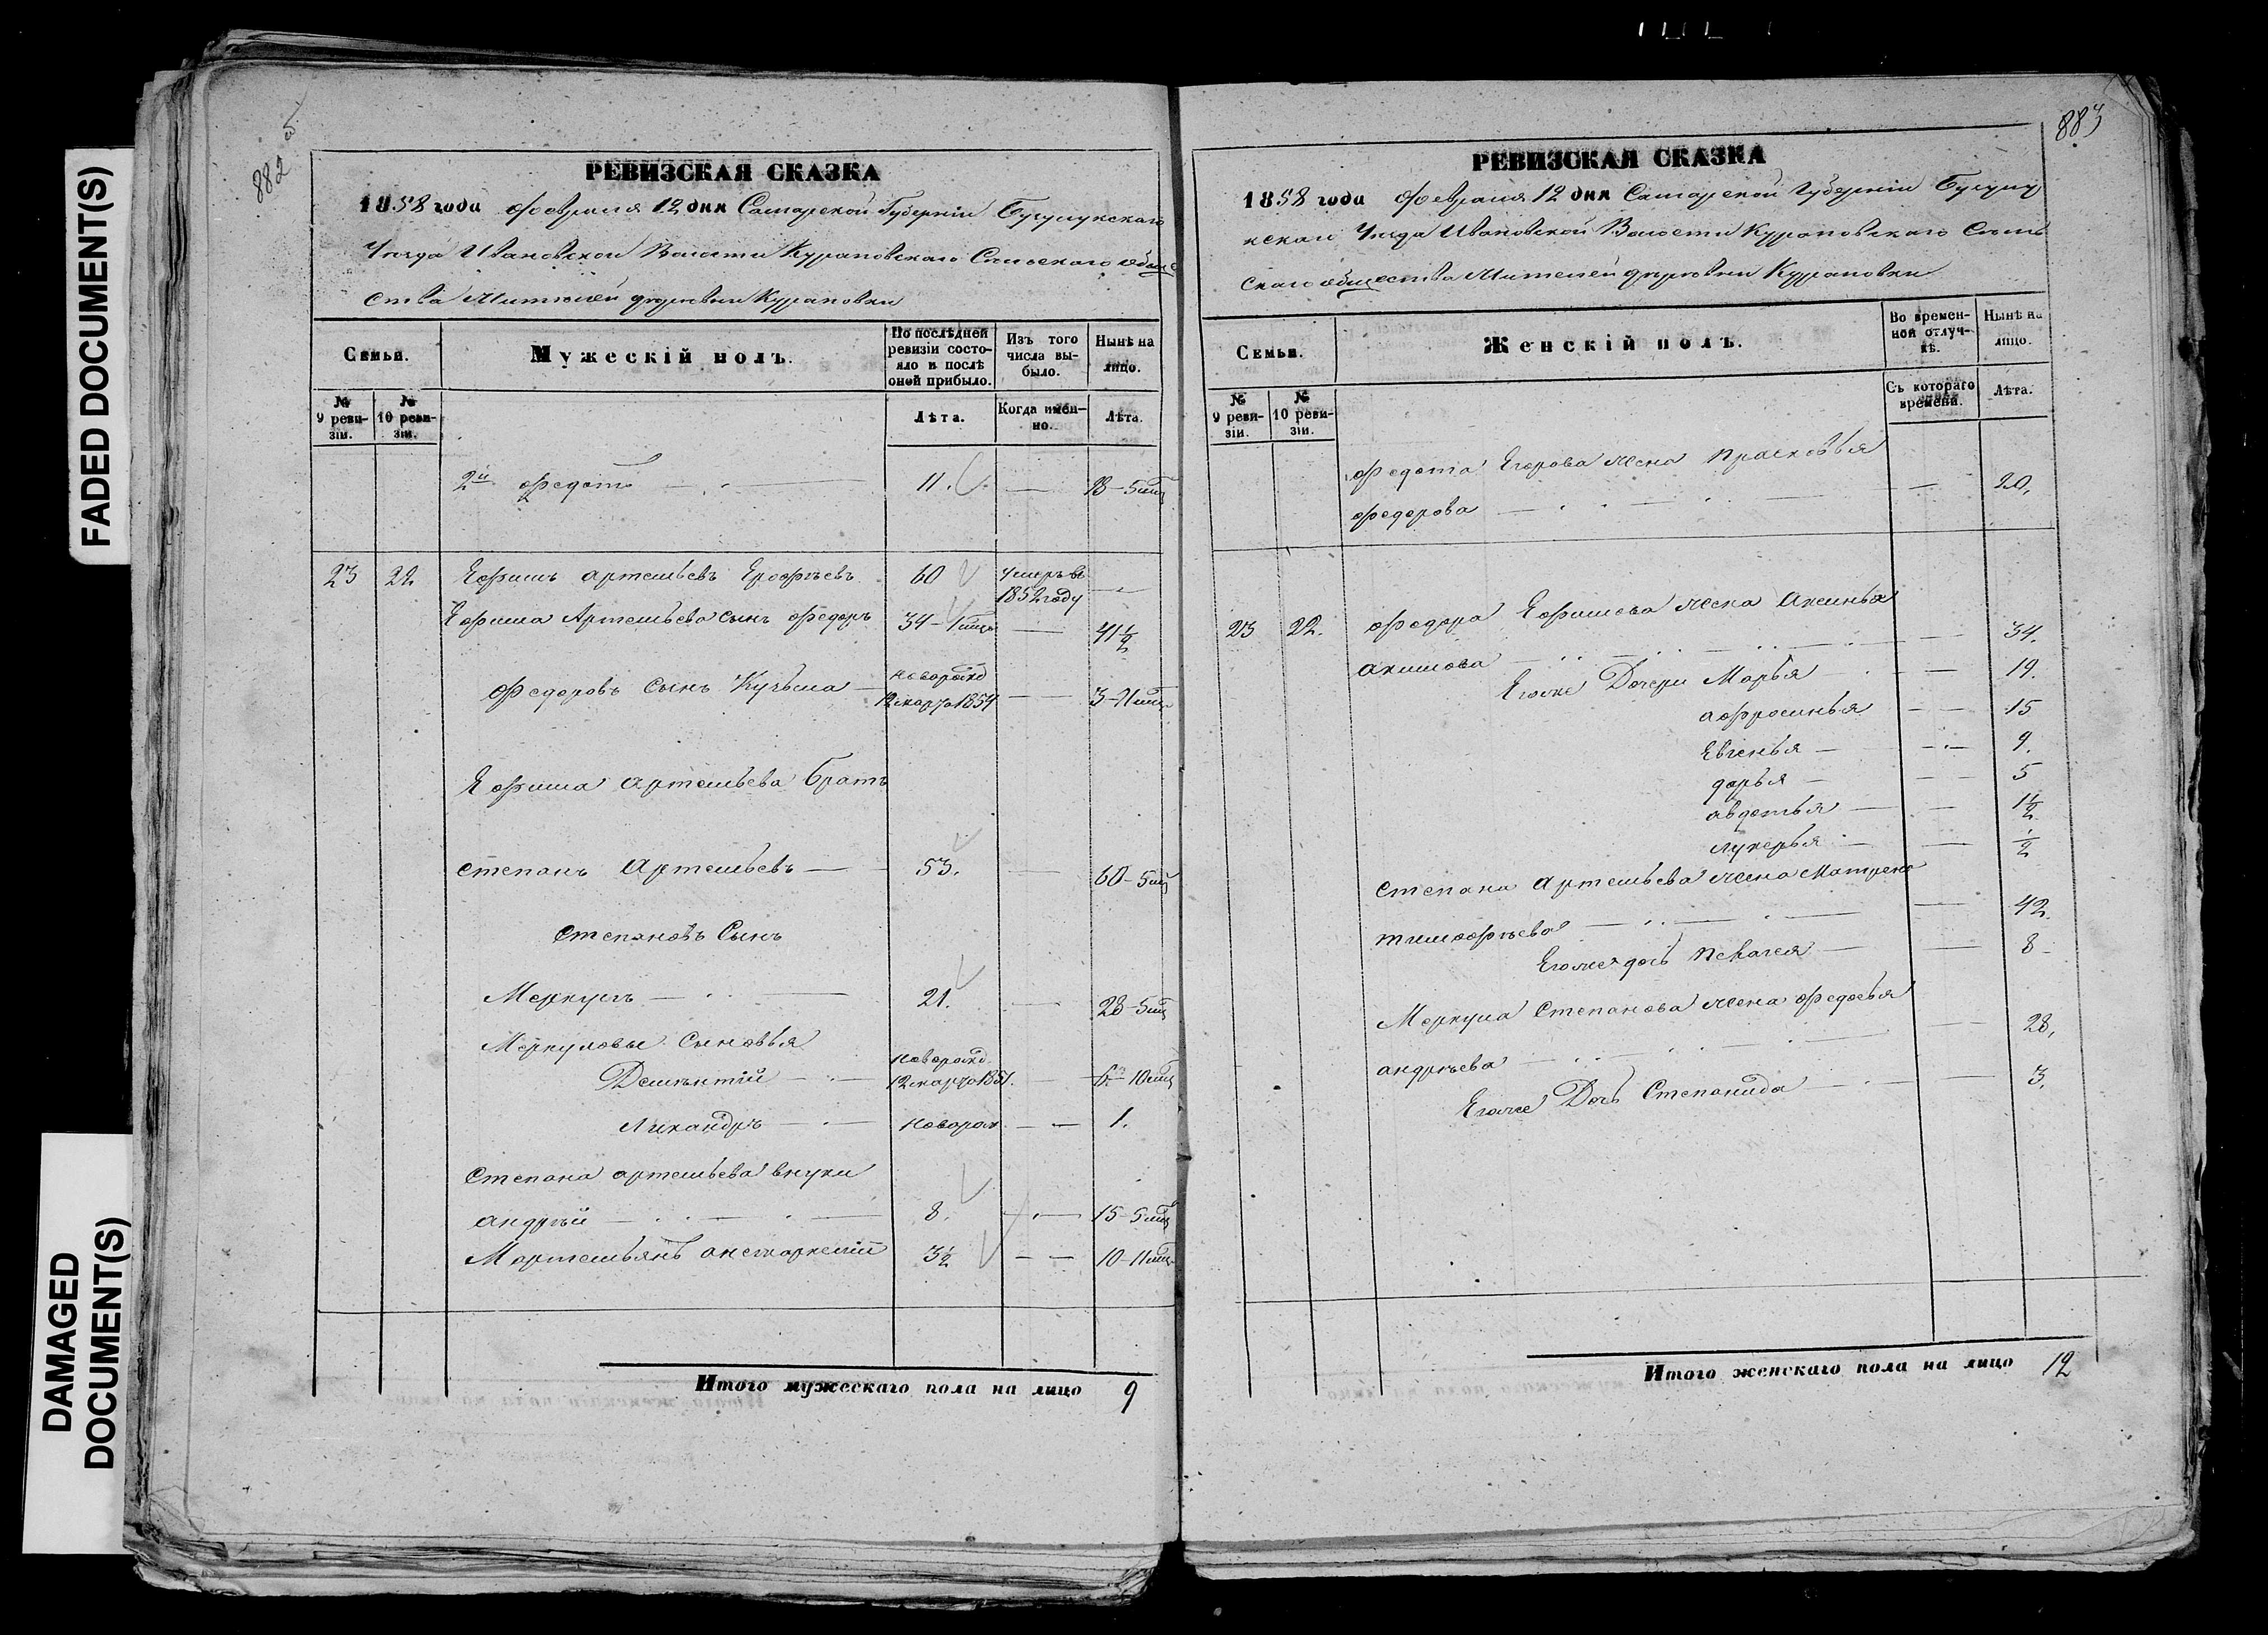 FADED DOCUMENT(S)
DAMAGED
DOCUMENT(S)
882
РЕВИЗСКАЯ СКАЗКА
1858 года февраля 12 дня Самарской Губерніи Бугурусланскаго
Уѣзда Ивановской Волости Кураповскаго Сельскаго обще
ства Жителей деревни Кураповки
Семьи.
Мужескій полъ.
По послѣдней
ревизіи состо-
яло и послѣ
оной прибыло.
Изъ того
числа вы-
было.
Нынѣ на
лицо.
№
9 реви-
зіи.
№
10 реви-
зіи.
Лѣта.
Когда имен-
но.
Лѣта.
2й Федотъ 11. 18-5 мѣц
23 22 Ефимъ Артемьевъ Ерофѣевъ 60 умеръ въ
1852 году
Ефима Артемьева сынъ Федоръ 34- 41½
Федоровъ сынъ Кузьма
новорожд
12 марта 1854 3-11 мѣц
Ефима Артемьева братъ
Степанъ Артемьевъ 53. 60-5 мѣц
Степановъ Сынъ
Меркулъ 21. 28-5 мѣц
Меркуловы Сыновья
Дементій
новорожд
12 марта 1851. 6-10 мѣц
Новорож 1.
Степана артемьева внуки
андрей 8. 15-5 мѣц
Мартемьянъ 3½ 10-11 мѣц
Итого мужескаго пола на лицо 9
883
РЕВИЗСКАЯ СКАЗКА
1858 года февраля 12 дня Самарской Губерніи Бугуру
Уѣзда Ивановской Волости Кураповскаго Сель
скаго общества Жителей деревни Кураповки
Семьи.
Женскій полъ.
Во времен-
ной отлуч-
кѣ.
Нынѣ на
лицо.
№
9 реви-
зіи.
№
10 реви-
зіи.
Съ котораго
времени.
Лѣта.
Федота Егорова жена Прасковья
Федорова 20.
23 22. Федора Ефимова жена Аксинья
акимова 34.
Егоже Дочери Марья 19.
афросинья 15
Евгенья 9.
дарья 5
авдотья 1½
лукерья ½
Степана Артемьева жена Матрена
тимофѣева 42.
Егоже дочь Пелагея 8
Меркула Степанова жена Федосья
андрѣева 28.
Егоже Дочь Степанида 3.
Итого женскаго пола на лицо 12